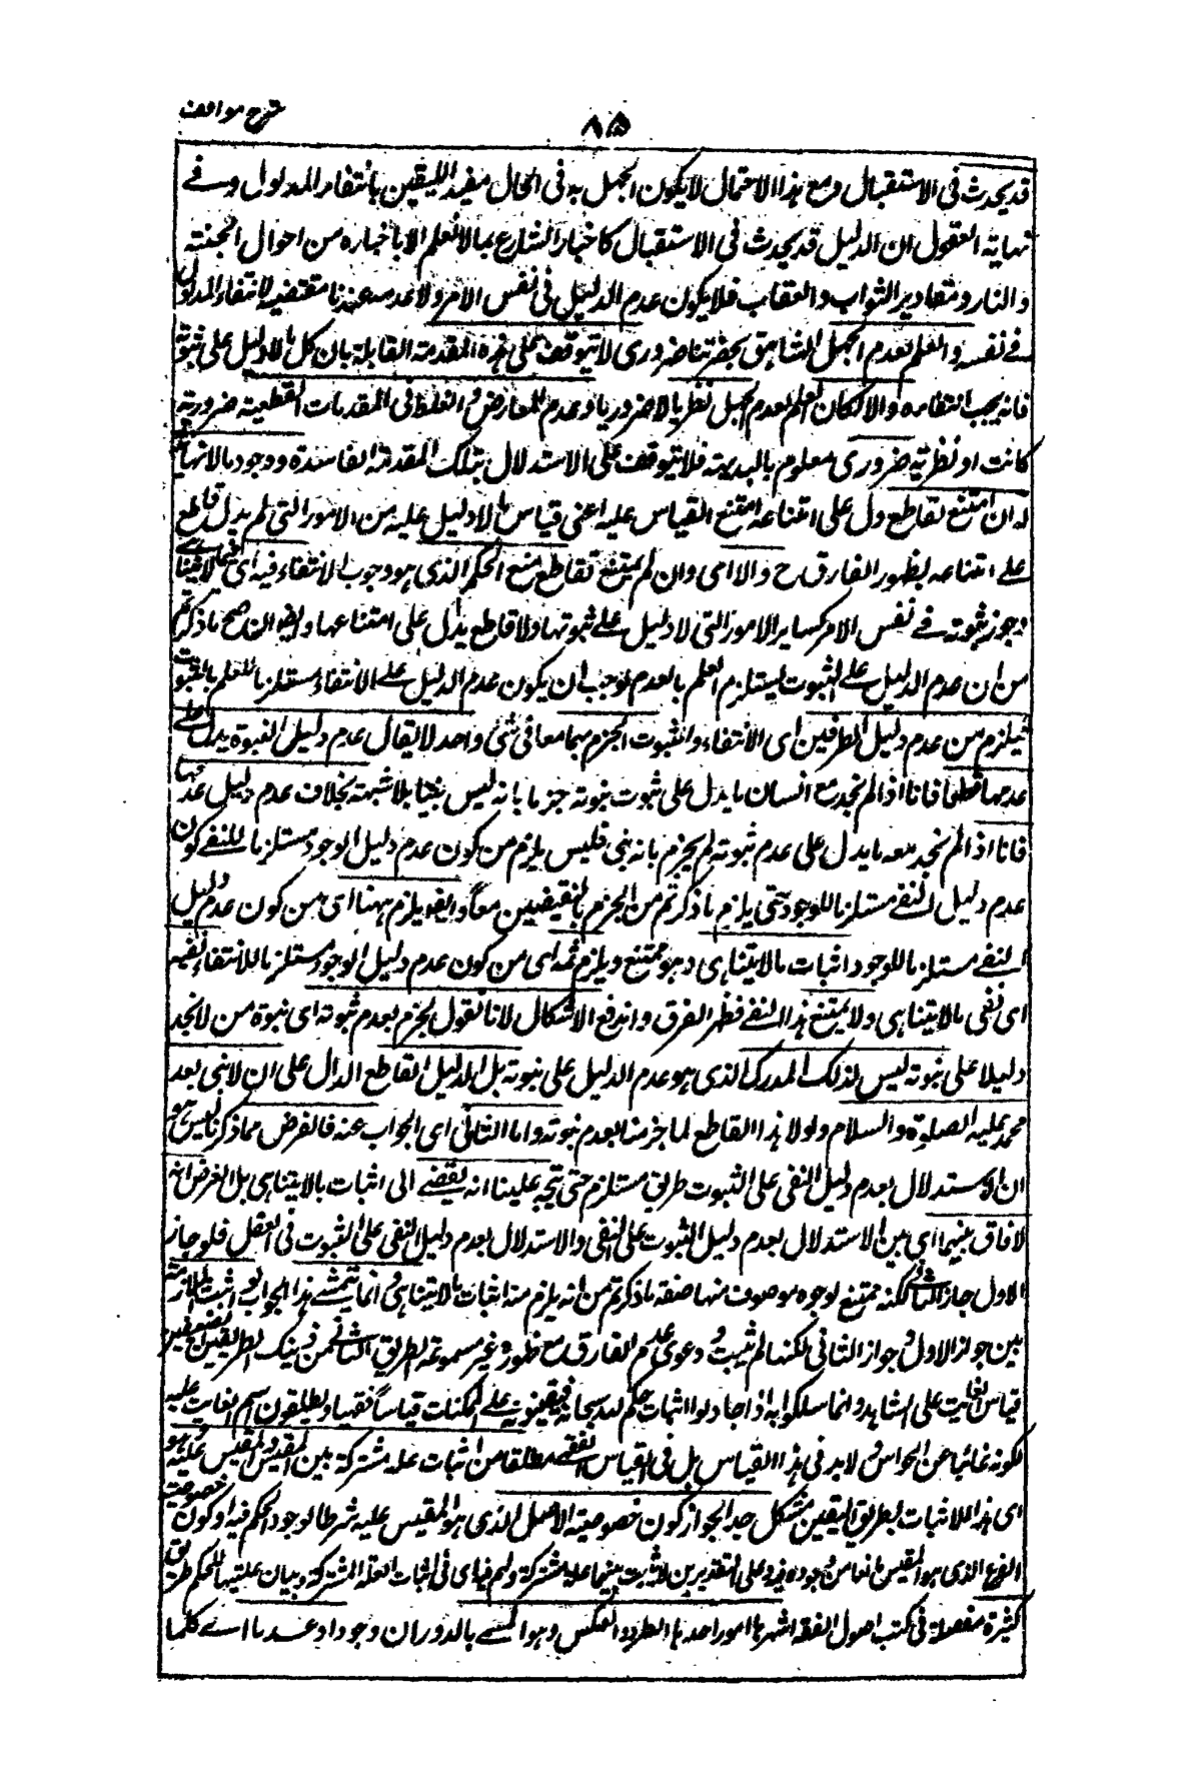 شرح مواقف
٨٥
قد يحدث في الاستقبال ومع هذا الاحتمال لا يكون الجهل به في الحال مفيد اليقين بانتفاء المدلول وفے
نهاية العقول ان الدليل قد يحدث في الاستقبال كاخبار الشارع بما لا نعلم الا باخباره من احوال الجنة
والنار ومقادير الثواب والعقاب فلا يكون عدم الدليل في نفس الامر ولا عدمه عندنا مقتضيا لانتفاء المدلول
فے نفسه والعلم بعدم الجبل الشاهق بحضرتنا ضروری لا يتوقف على هذه المقدمة القائلة بان كل ما لا دليل على ثبوته
فانه يجب انتفاءه والا لكان العلم بعدم الجبل نظريا لا ضروريا وعدم المعارض والغلط في المقدمات القطعية ضرورية
كانت او نظرية ضروری معلوم بالبديهة فلا يتوقف على الاستدلال بتلك المقدمة الفاسدة ووجود ما لا نهاية
له ان امتنع لقاطع دل على امتناعه امتنع القياس عليه اعنی قياس ما لا دليل عليه من الامور التي لم يدل قاطع
علے امتناعه لظهور الفارق ح والا ای وان لم يمتنع لقاطع منع الحكم الذی هو وجوب الانتفاء فيه ای
وجوز ثبوته فے نفس الامر كسائر الامور التی لا دليل علے ثبوتها ولا قاطع يدل على امتناعها وايضا لو صح ما ذكرتم
من ان عدم الدليل علے الثبوت يستلزم العلم بالعدم لوجب ان يكون عدم الدليل علے الانتفاء مستلزما للعلم بالثبوت
فيلزم من عدم دليل الطرفين ای الانتفاء والثبوت الجزم بهما معا فی شئ واحد لا يقال عدم دليل النبوة يدل علے
عدمها قطعا فانا اذا لم نجد مع انسان ما يدل على ثبوت نبوته جزما بانه ليس نبيا بلا شبهة بخلاف عدم دليل عدمها
فانا اذا لم نجد معه ما يدل على عدم ثبوته لم يجزم بانه نبی فليس يلزم من كون عدم دليل الوجود مستلزما للنفے كون
عدم دليل النفے مستلزما للوجود حتى يلزم ما ذكرتم من الجزم بالنقيضين معا وايضا يلزم ههنا ای من كون عدم دليل
النفے مستلزما للوجود اثبات ما لا يتناهی وهو ممتنع ويلزم ثمه ای من كون عدم دليل الوجود مستلزما للانتفاء نفيه
ای نفی ما لا يتناهی ولا يمتنع هذا النفے فظهر الفرق واندفع الاشكال لانا نقول الجزم بعدم ثبوته ای نبوة من لا نجد
دليلا على نبوته ليس لذلك المدرك الذی هو عدم الدليل على نبوته بل للدليل القاطع الدال على ان لا نبی بعد
محمد عليه الصلوة والسلام ولولا هذا القاطع لما جزمنا بعدم نبوته واما الثانی ای الجواب عنه فالغرض مما ذكرنا ليس هو
ان الاستدلال بعدم دليل النفی على الثبوت طريق مستلزم حتى يتجه علينا انه يفضے الى اثبات ما لا يتناهی بل الغرض انه
لا فارق بينهما ای بين الاستدلال بعدم دليل الثبوت على النفی والاستدلال بعدم دليل النفی على الثبوت فی العقل فلو جاز
الاول جاز الثانی لكنه ممتنع لوجوه موصوف منها صفة ما ذكرتم من انه يلزم منه اثبات ما لا يتناهی وانما يتمشے هذا الجواب لو اثبت الملازمة
بين جواز الاول وجواز الثانی لكنها لم تثبت ودعوی عدم الفارق مع ظهوره غير مسموعة الطريق الثانی من ذينك الطريقين الضعيفين
قياس الغائب على الشاهد وانما سلكوا به اذا حاولوا اثبات حكم لله سبحانه فيقيسونه علے الممكنات قياسا فقهيا ويطلقون اسم الغائب عليه
لكونه غائبا عن الحواس ولا بد فی هذا القياس بل فی القياس الفقهے مطلقا من اثبات علة مشتركة بين المقيس والمقيس عليه وهو
ای هذا الاثبات بطريق اليقين مشكل جدا لجواز كون خصوصية الاصل الذی هو المقيس عليه شرطا لوجود الحكم فيه او كون خصوصية
الفرع الذی هو المقيس مانعا من وجوده فيه وعلى التقديرين لا يثبت بينهما علة مشتركة ولهم فی اثبات العلة المشتركة وبيان عليتها للحكم طرق
كثيرة مفصلة فی كتب اصول الفقه اشهرها امور احدها الطرد والعكس وهو المسے بالدوران وجودا وعدما اے كلما